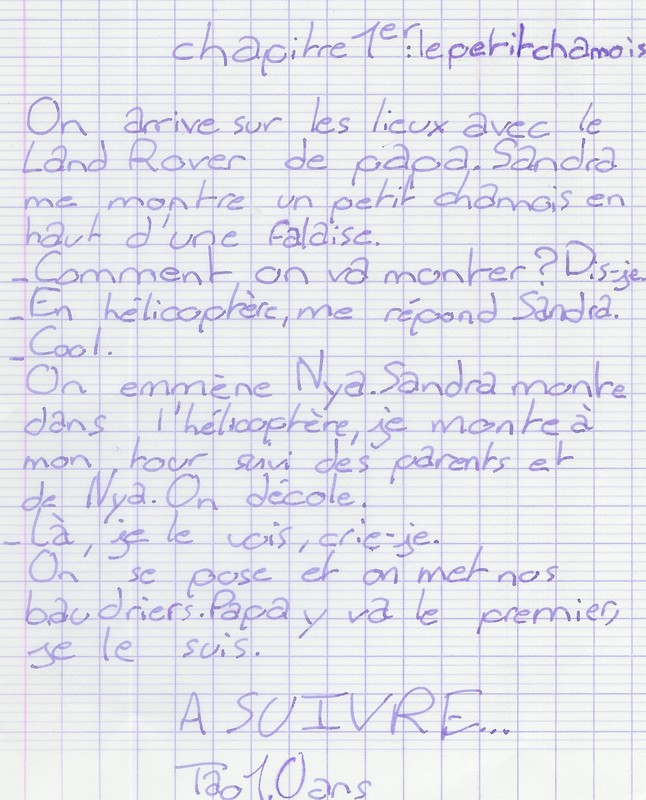 chapitre 1er: le petit chamois
On arrive sur les lieux avec le
Land Rover de papa. Sandra
me montre un petit chamois en
haut d'une falaise.
_Comment on va monter? Dis-je.
_En hélicoptère, me répond Sandra.
_Cool.
On emmène Nya. Sandra monte
dans l'hélicoptère, je monte à
mon tour suivi des parents et
de Nya. On décole.
_Là, je le vois, crie-je.
On se pose et on met nos
baudriers. Papa y va le premier,
je le suis.
A SUIVRE...
Tao 1.0 ans